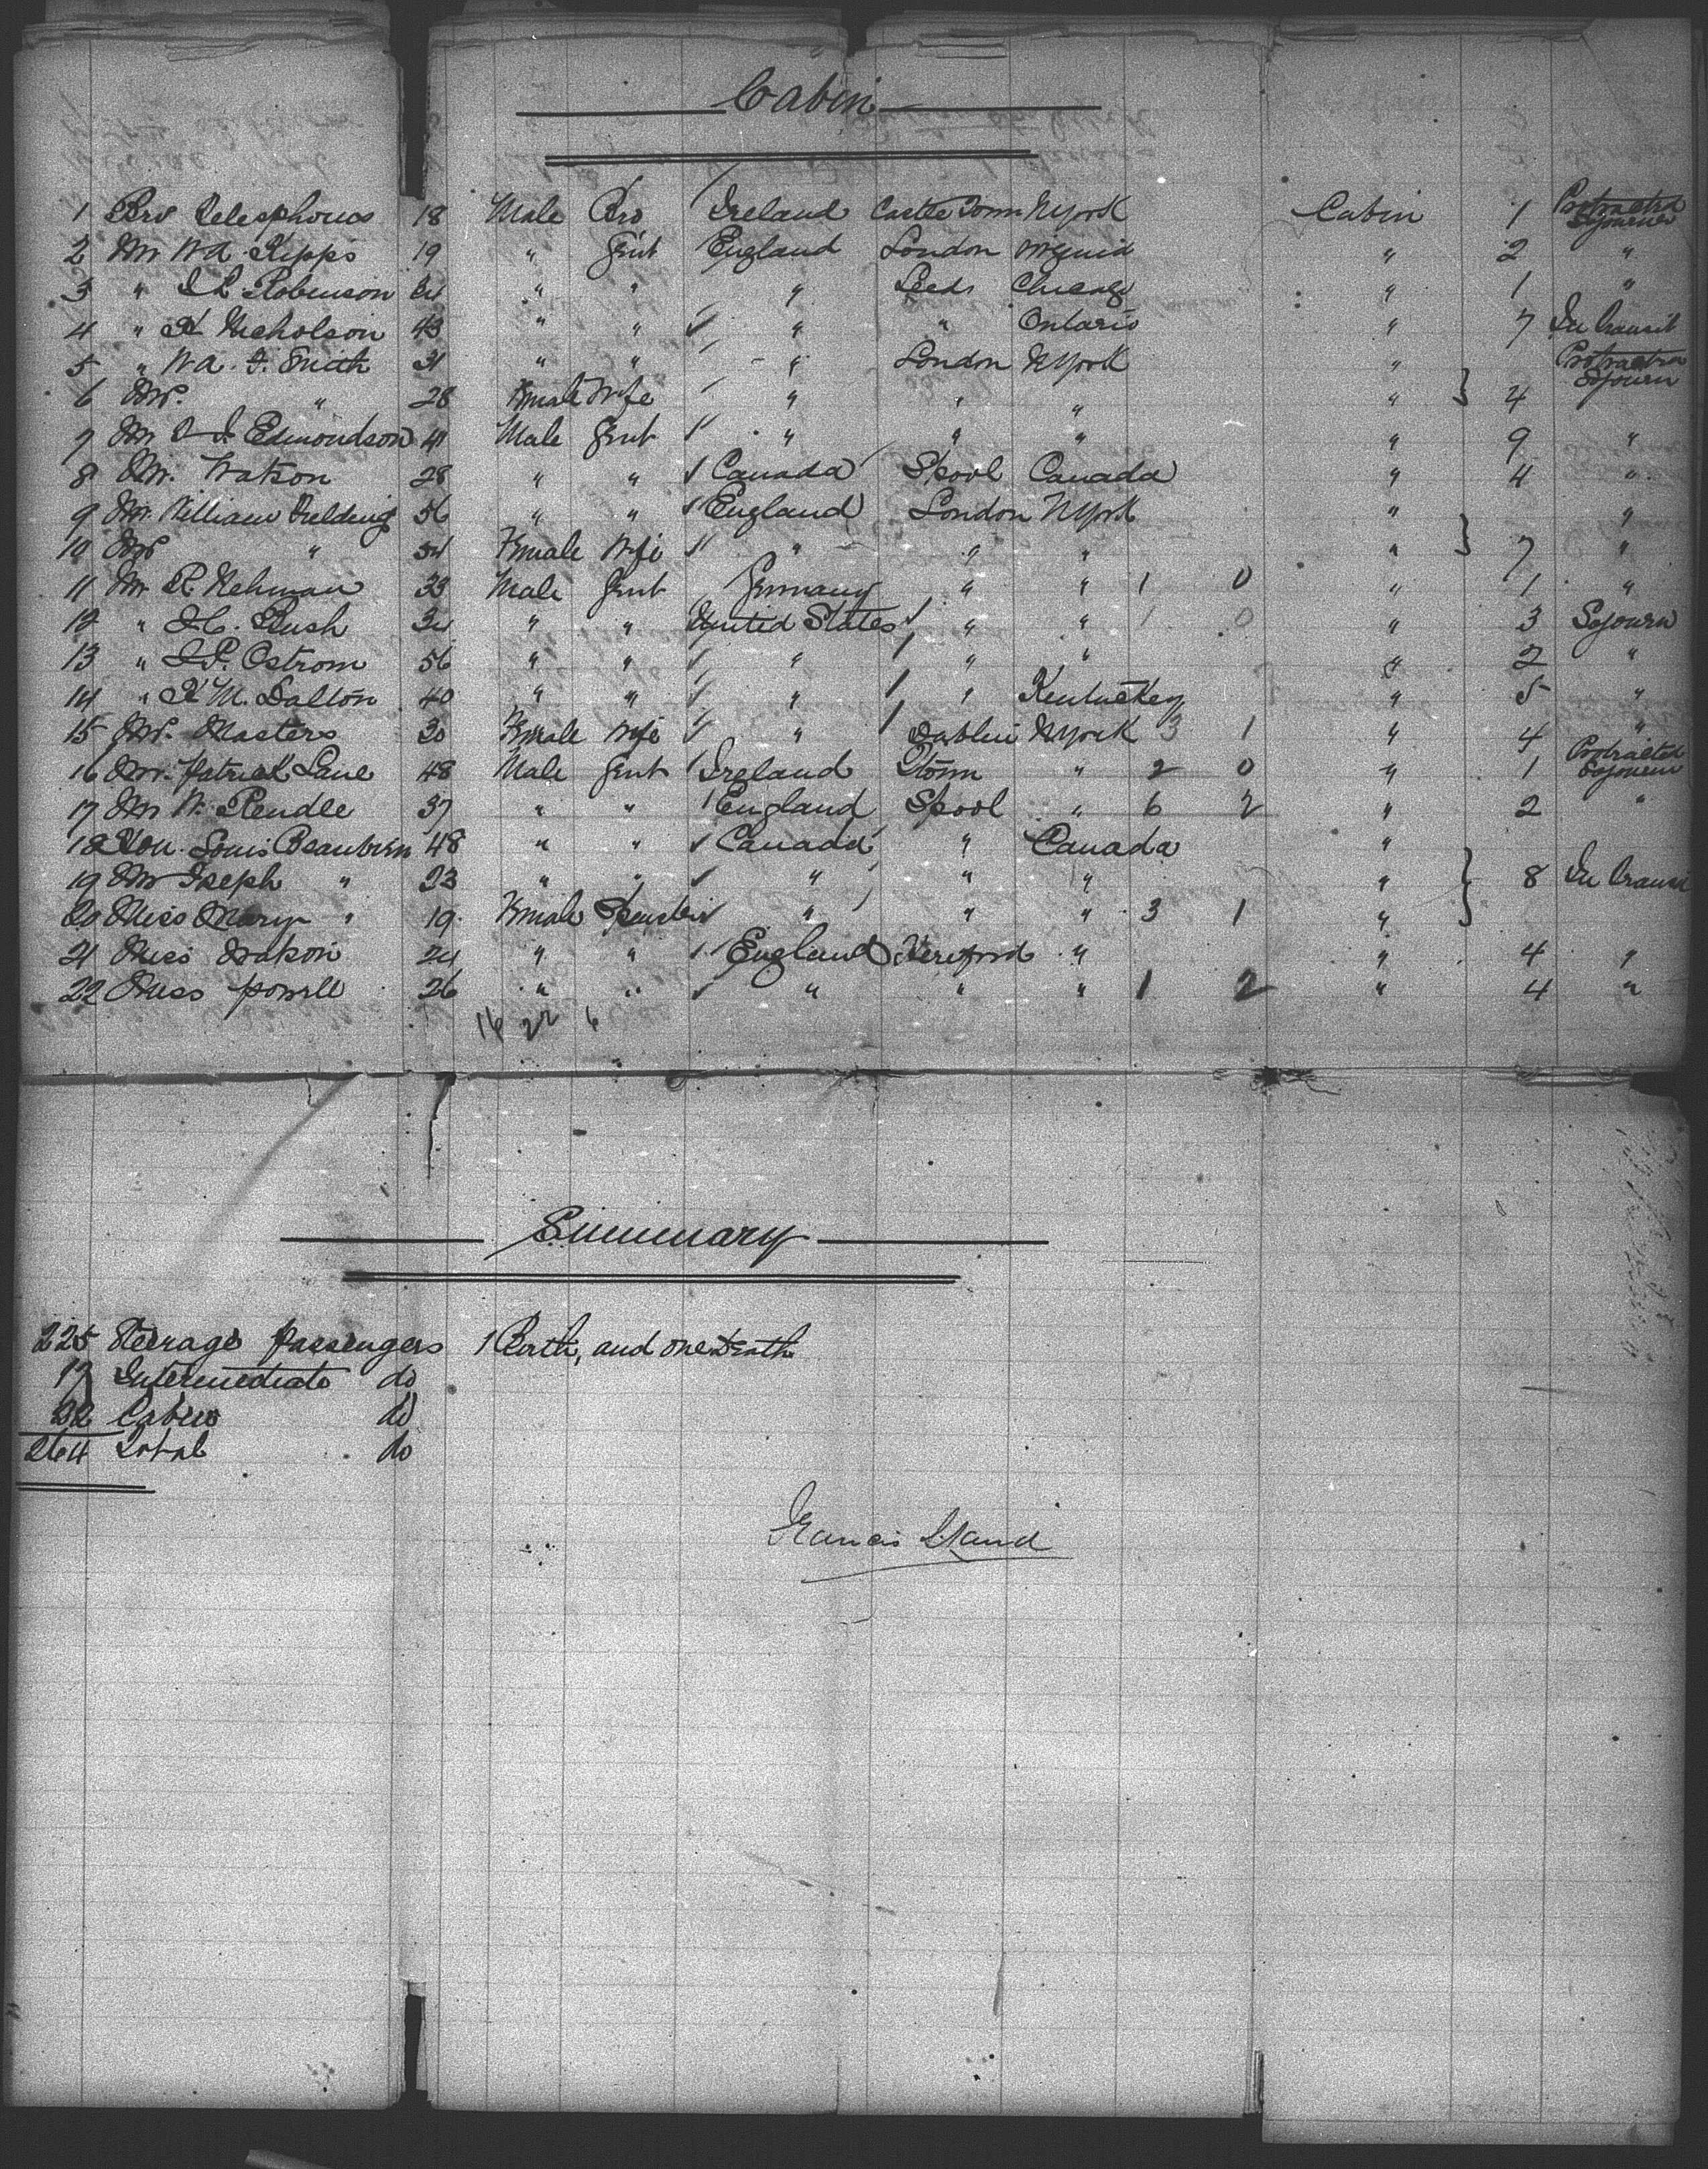 Cabin
1 Bro Telesphorus 18 Male Bro Ireland Castle Town N York Cabin 1 Protracted Sojourn
2 Mr W A Kipps 19 " Gent England London " 2 "
3 " J L Robinson 34 " " " Leeds Chicago " 1 "
4 " H Nicholson 43 " " " " Ontario " 7 In Transit
5 " W A. F. Smith 31 " " " London N York " Protracted Sojourn
6 Mrs. " 28 Female Wife " " " " } 4
7 Mr J. Edmondson 41 Male Gent " " " " 9 "
8 Mr. Watson 28 " " Canada Lpool Canada " 4 "
9 Mr. William Fielding 56 " " England London N York " "
10 Mrs " 54 Female Wife " " " " } 7 "
11 Mr R Nehman 33 Male Gent Germany " " 1 0 " 1 "
12 " J C. Rush 34 " " United States " " 1 0 " 3 Sojourn
13 " J P. Ostrom 56 " " " " " " 2 "
14 " H M. Dalton 40 " " " " Kentuckey " 5 "
15 Mrs. Masters 30 Female Wife " Dublin N York 3 1 " 4 "
16 Mr. Patrick Lane 48 Male Gent Ireland Qtown " 2 0 " 1 Protracted Sojourn
17 Mr W. Rendle 37 " " England Lpool " 6 2 " 2 "
18 Hon. Louis Beaubien 48 " " Canada " Canada "
19 Mr Joseph " 23 " " " " " " } 8 In Transit
20 Miss Mary " 19 Female Spinster " " " 3 1 "
21 Miss Watson 24 " " England Hereford " " 4 "
22 Miss Powell 26 " " " " " 1 2 " 4 "
16 22 6
Summary
225 Steerage passengers 1 Birth, and one Death
17 Intermediate do
22 Cabin do
264 Total do
Francis Stand